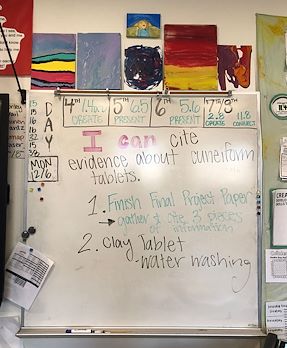 DAY
MON
12/6
4TH 1.4a.3 5TH 6.5 6TH 5.6 7TH/8TH
CREATE PRESENT PRESENT 2.8 CREATE 11.8 CONNECT
I can cite
evidence about cuneiform
tablets.
1. Finish Final Project Paper
→ gather & cite 3 pieces
of information
2. Clay Tablet
- water washing